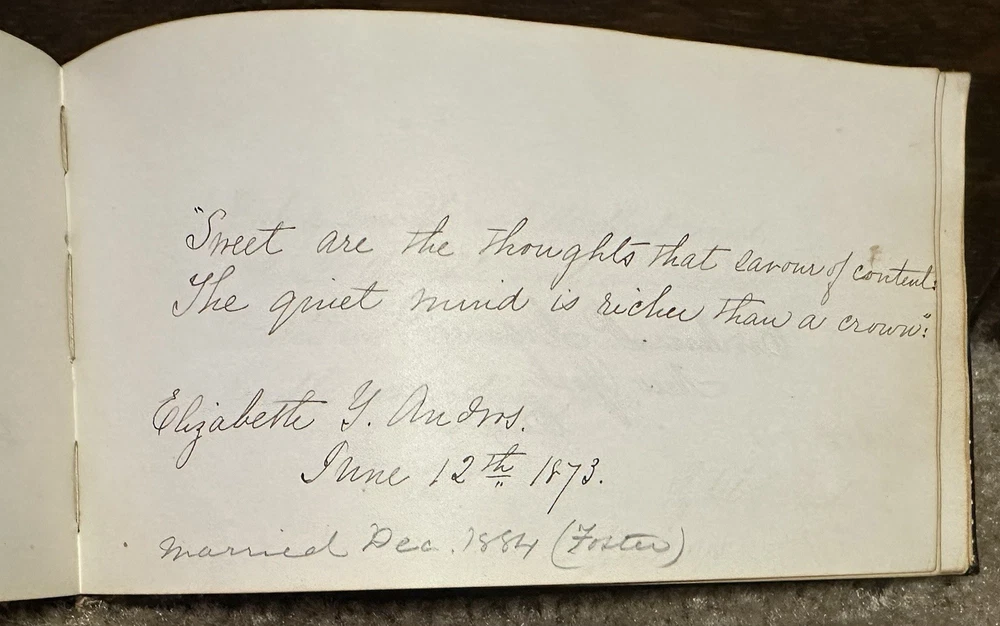 "Sweet are the thoughts that savour of content:
The quiet mind is richer than a crown":
Elizabeth Y. Andros.
June 12th 1873.
married Dec. 1884 (Foster)